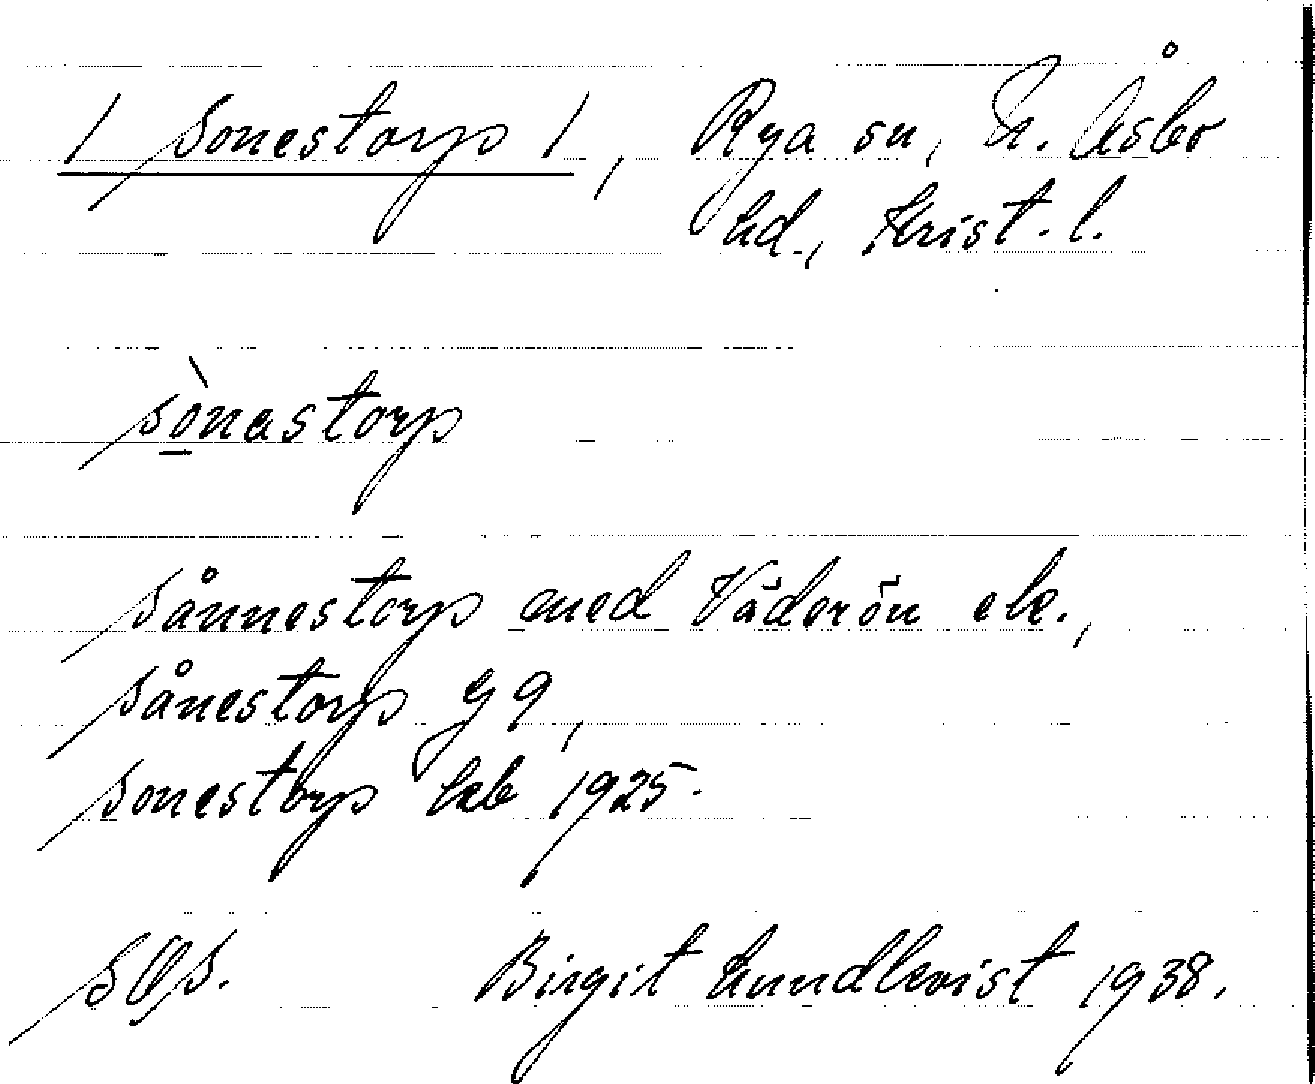 / Sonestorp /, Rya sn, N. Åsbo
hd., Krist. l.
sònastorp
Sånnestorp med Väderön ek.,
Sånestorp G 9,
Sonestorp kb 1925.
SOS. Birgit Lundkvist 1938.